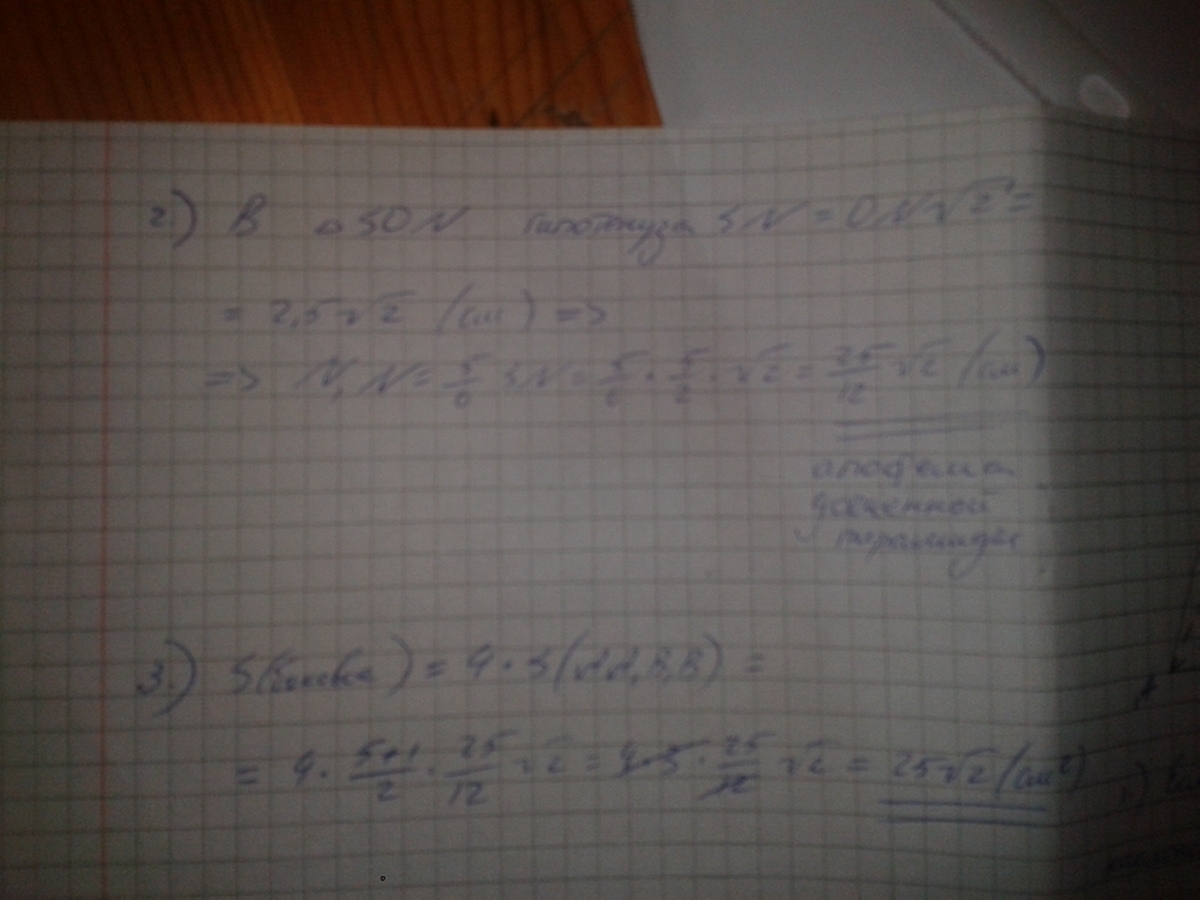 2.) В △SON гипотенуза SN = ON√2 =
= 2,5√2 (см) =>
=> N₁N = 5/6 SN = 5/6 · 5/2 · √2 = 25/12 √2 (см)
апофема
усеченной
пирамиды
3.) S(боковая) = 4 · S(AA₁B₁B) =
= 4 · (5+1)/2 · 25/12 √2 = 4·3 · 25/12 √2 = 25√2 (см²)